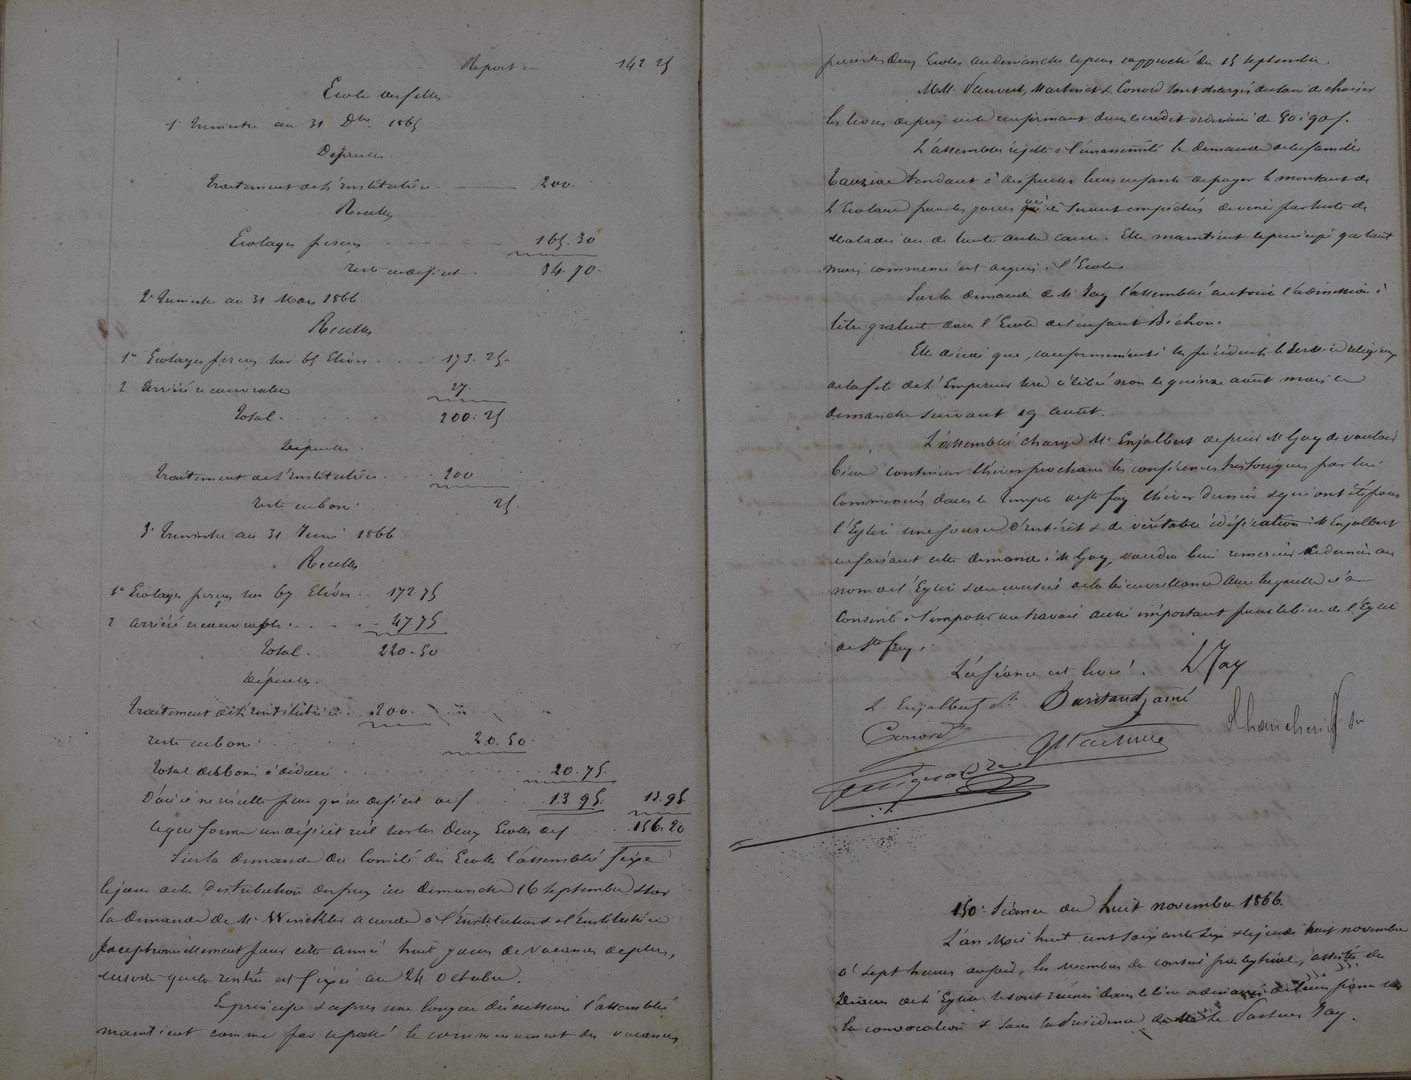 Report 142.25
Ecole des filles
1er Trimestre au 31 Dbre 1865
Dépenses
Traitement de l'Institutrice 200.
Recettes
Ecolages perçus 165.30
reste en déficit. 34.70.
2e Trimestre au 31 Mars 1866.
Recettes
1° Ecolages perçus sur 65 Elèves 173.25
2 arriéré recouvrable 27.
Total 200.25
Dépenses.
Traitement de l'Institutrice 200
reste en boni 25.
3e Trimestre au 31 Juin 1866
Recettes
1° Ecolages perçus sur 67 Elèves 172.75
2 arriéré recouvrable 47.75
Total. 220.50
Dépenses.
Traitement de l'Institutrice 200.
reste en boni 20.50
Total des boni à déduire 20.75.
D'où il ne resulte plus qu'un déficit de f 13.95. 13.95.
ce qui forme un déficit réel sur les deux Ecoles de f 156.20
Sur la demande du Comité des Ecoles l'assemblée fixe
le jour de la distribution des prix au dimanche 16 septembre & sur
la demande de Mr Winckler accorde à l'Instituteur & à l'Institutrice
exceptionnellement pour cette année huit jours de vacances de plus,
en sorte que la rentrée est fixée au 24 octobre.
En principe & après une longue discussion l'assemblée
maintient comme par le passé le commencement des vacances
pour les deux Ecoles au dimanche le plus rapproché du 15 septembre.
MM. Vauvert, Martinet & Conord sont chargés du soin de choisir
les livres de prix en se conformant dans le crédit ordinaire de 80 à 90 f.
L'assemblée rejette à l'unanimité la demande de la famille
tendant à dispenser leurs enfants de payer le montant de
l'Ecolage pour les jours où ils seront empêchés de venir par suite de
maladie ou de toute autre cause. Elle maintient le principe que tout
mois commencé est acquis à l'Ecole.
Sur la demande de Mr Fay l'assemblée autorise l'admission à
titre gratuit dans l'Ecole de l'enfant Bichon.
Elle décide que, conformément à les précédents, le service religieux
de la fête de l'Empereur sera célébré non le quinze août mais le
dimanche suivant 19 août.
L'assemblée charge Mr Enjalbert de prier M Guy de vouloir
bien continuer l'hiver prochain les conférences historiques par lui
commencées dans le temple de Ste foy l'hiver dernier & qui ont été pour
l'Eglise une source d'intérêt & de véritable édification. M Enjalbert
en faisant cette demande à M Guy, voudra bien remercier ce dernier au
nom de l'Eglise & du conseil de la bienveillance avec laquelle il a
consenti à s'imposer un travail aussi important pour le bien de l'Eglise
de Ste foy.
La séance est levée. L Fay
L. Enjalbert
Conord
150e Séance du huit novembre 1866.
L'an Mil huit cent soixante six & le jeudi huit novembre
à sept heures du soir, les membres du conseil presbytéral, assistés de
Diacres de l'Eglise se sont réunis dans le lieu ordinaire de leurs séances
la convocation & sous la Présidence de Mr le Pasteur Fay.